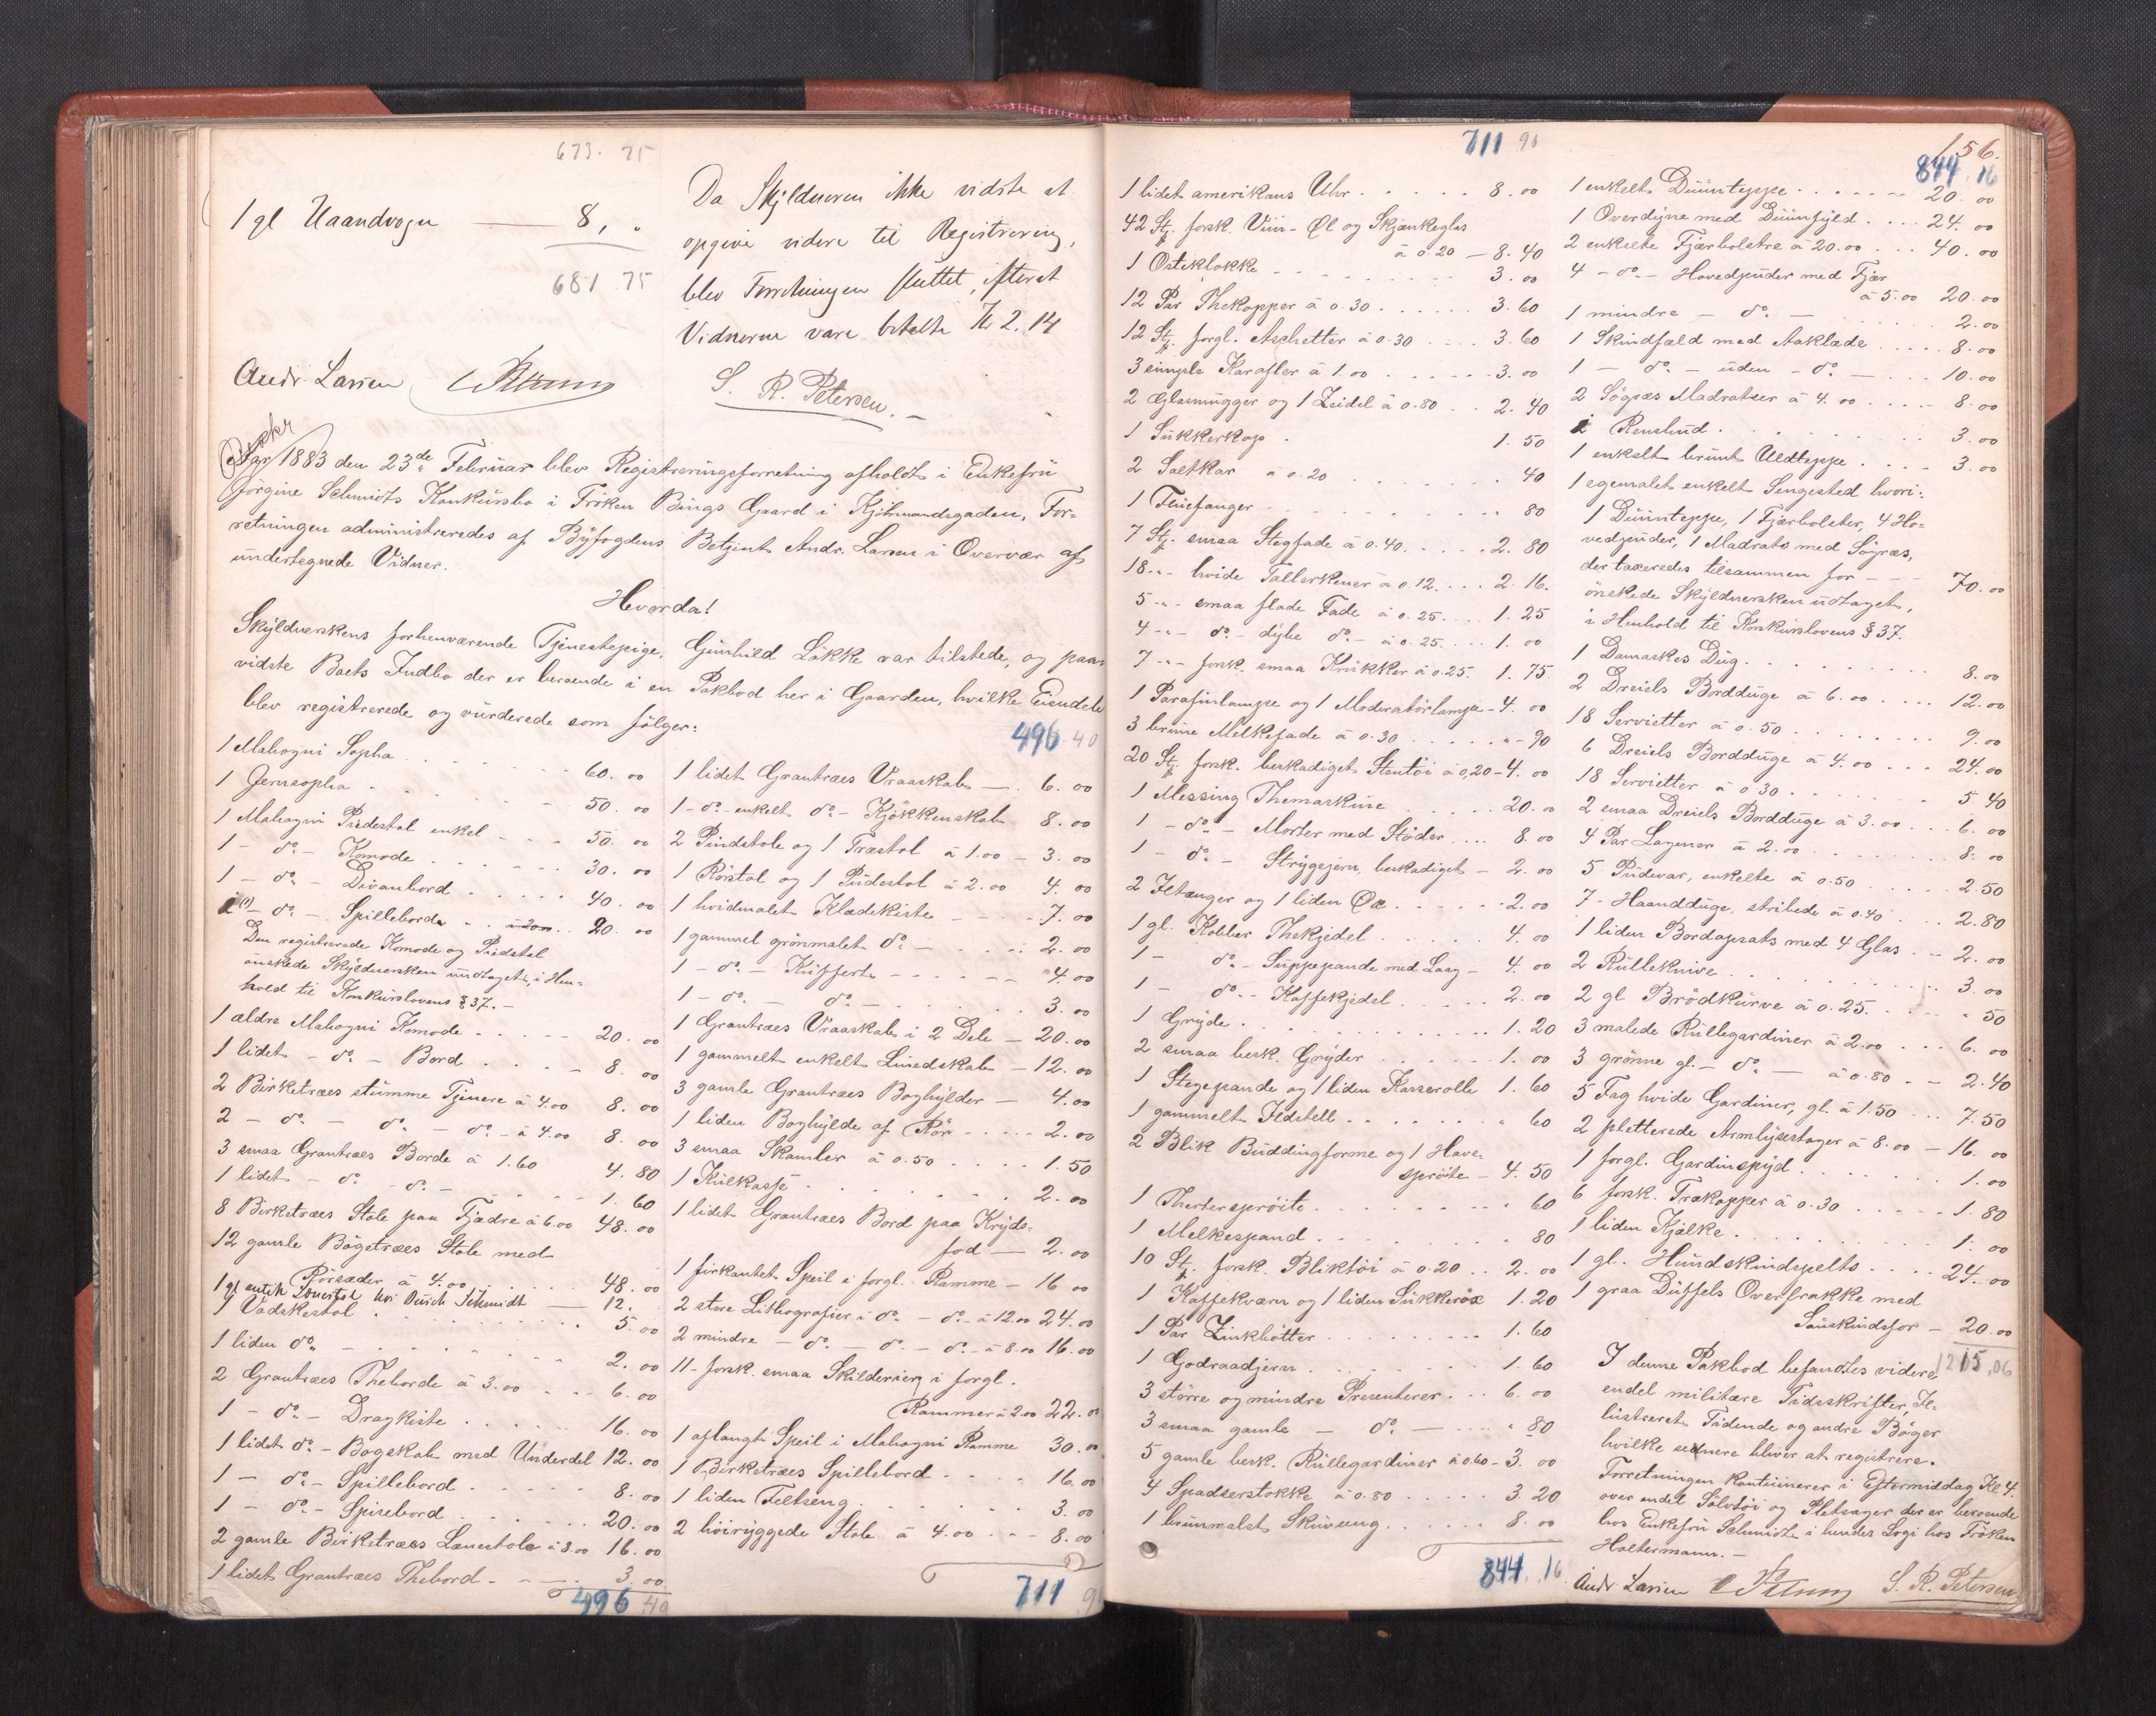 673. 75
1 gl Haandvogn — 8, "
681 75
Da Skyldneren ikke vidste at
opgive videre til Registrering,
blev Forretningen sluttet, efterat
Vidnerne vare betalte Kr 2.14
Andr. Larsen
S. R. Petersen. —
Aar 1883 den 23de Februar blev Registreringsforretning afholdt i Enkefru
Jörgine Schmidts Konkursbo i Fröken Bings Gaard i Kjöbmandsgaden, For-
retningen administreredes af Byfogdens Betjent Andr. Larsen i Overvær af
undertegnede Vidner.
Hvorda!
Skyldnerskens forhenværende Tjenestepige, Gunhild Lökke var tilstede, og paa-
viste Boets Indbo der er beroende i en Pakbod her i Gaarden, hvilke Eiendele
blev registrerede og vurderede som fölger:
1 Mahogni Sopha . . . 60. 00
1 Jernsopha . . . 50. 00
1 Mahogni Pidestal enkel - - - 50. 00
1 - do - Komode . . . 30. 00
1 - do - Divanbord . . . 40. 00
1 (?) - do - Spilleborde . . à 20 00 . . 20. 00
Den registrerede Komode og Pidestal
önskede Skyldnersken undtaget, i Hen-
hold til Konkurslovens § 37. —
1 ældre Mahogni Komode . . . 20. 00
1 lidet - do - Bord . . . 8. 00
2 Birketræes stumme Tjenere à 4.00 8. 00
2 - do - do - do - à 4.00 8. 00
3 smaa Grantræes Borde à 1.60 4. 80
1 lidet - do - do - . . . 1. 60
8 Birketræes Stole paa Fjædre à 6.00 48. 00
12 gamle Bögetræes Stole med
Rörsæder à 4.00 . . . 48. 00
1 gl antik Lænestol hos Schmidt — 12.
1 Vadskestol . . . 5. 00
1 liden do — . . . 2. 00
2 Grantræes Theborde à 3.00 . . . 6. 00
1 - do - Dragkiste . . . 16. 00
1 lidet do - Bogskab med Underdel 12. 00
1 - do - Spillebord . . . 8. 00
1 - do - Spisebord . . . 20. 00
2 gamle Birketræes Lænestole à 8.00 16. 00
1 lidet Grantræes Thebord . . . 3. 00
496 . 40
496 . 40
1 lidet Grantræes Vraaskab — . 6. 00
1 - do - enkelt do - Kjökkenskab 8. 00
2 Pindstole og 1 Træstol à 1.00 — 3. 00
1 Rörstol og 1 Pudestol à 2.00 4. 00
1 hvidmalet Klædekiste - - - - 7. 00
1 gammel grönmalet do — . . . 2. 00
1 - do - Kuffert - - - - 4. 00
1 - do - do - . . . 3. 00
1 Grantræes Vraaskab i 2 Dele — 20. 00
1 gammelt enkelt Linedskab — 12. 00
3 gamle Grantræes Boghylder — 4. 00
1 liden Boghylde af Rör - - - - 2. 00
3 smaa Skamler à 0.50 . . . 1. 50
1 Kulkasse . . . 2. 00
1 lidet Grantræes Bord paa Kryds-
fod — 2. 00
1 firkantet Speil i forgl. Ramme — 16 00
2 store Lithografier i do - do - à 12.00 24. 00
2 mindre - do - do - do - à 8.00 16. 00
11 - forsk. smaa Skilderier i forgl.
Rammer à 2.00 22. 00
1 aflangt Speil i Mahogni Ramme 30. 00
1 Birketræes Spillebord . . . 16. 00
1 liden Feltseng . . . 3. 00
2 höiryggede Stole à 4.00 . . . 8. 00
711 . 9
711 90
1 lidet amerikans Uhr . . . 8. 00
42 Stk. forsk. Viin- Öl og Skjænkeglas
à 0.20 — 8. 40
1 Osteklokke . . . 3. 00
12 Par Thekopper à 0.30 . . . 3. 60
12 Stk. forgl. Aschetter à 0.30 . . . 3. 60
3 simple Karafler à 1.00 . . . 3. 00
2 Glasmugger og 1 Zeidel à 0.80 . . 2. 40
1 Sukkerkop . 1. 50
2 Saltkar à 0.20 . . . 40
1 Fluefanger . . . 80
7 Stk. smaa Stegfade à 0.40 . . . 2. 80
18 - " - hvide Tallerkener à 0.12 . . . 2. 16.
5 - " - smaa flade Fade à 0.25 . . . 1. 25
4 - " - do - dybe do - à 0.25 . . . 1. 00
7 - " - forsk. smaa Krukker à 0.25. 1. 75.
1 Parafinlampe og 1 Moderatörlampe — 4. 00
3 brune Melkefade à 0.30 . . . " — 90
20 Stk. forsk. beskadiget Stentöi à 0,20 — 4. 00
1 Messing Themaskine . . . 20. 00
1 - do - Morter med Stöder . . . 8. 00
1 - do - Strygejern, beskadiget — 2. 00
2 Ildtænger og 1 liden Öxe . . . 2. 00
1 gl. Kobber Thekjedel . . . 4. 00
1 - do - Suppepande med Laag — 4. 00
1 - do - Kaffekjedel . . . 2. 00
1 Gryde . . . 1. 20
2 smaa besk. Gryder . . . 1. 00
1 Stegepande og 1 liden Kasserolle 1. 60
1 gammelt Ildstell . . . " 60
2 Blik Buddingforme og 1 Have-
spröite — 4. 50
1 Thertespröite . . . " 60
1 Melkespand . . . " 80
10 Stk. forsk. Bliktöi à 0.20 . . 2. 00
1 Kaffekværn og 1 liden Sukkeröxe 1. 20
1 Par Zinkbötter . . . 1. 60
1 Godraadjern . . . 1. 60
3 större og mindre Presenterer . . . 6. 00
3 smaa gamle - do - . . . " 80
5 gamle besk. Rullegardiner à 0.60 — 3. 00
4 Spadserstokke à 0.80 . . . 3. 20
1 brunmalet Skuvseng . . . 8. 00
844. 16
156.
844 16
1 enkelt Duunteppe . . . 20. 00
1 Overdyne med Duunfyld . . . 24. 00
2 enkelte Fjærbolstre à 20.00 . . . 40. 00
4 - do - Hovedpuder med Fjær
à 5.00 20. 00
1 mindre - do - . . . 2. 00
1 Skindfæld med Aaklæde . . . 8. 00
1 - do - uden - do - . . . 10. 00
2 Sögræs Madratser à 4.00 . . . 8. 00
1 Renshud . . . 3. 00
1 enkelt brunt Uldteppe . . . 3. 00
1 egemalet enkelt Sengested hvori:
1 Duunteppe, 1 Fjærbolster, 4 Ho-
vedpuder, 1 Madrats med Sögræs,
der taxeredes tilsammen for — — 70. 00
önskede Skyldnersken undtaget,
i Henhold til Konkurslovens § 37.
1 Damaskes Dug . . . 8. 00
2 Dreiels Bordduge à 6.00 . . . 12. 00
18 Servietter à 0.50 . . . 9. 00
6 Dreiels Bordduge à 4.00 . . . 24. 00
18 Servietter à 0 30 . . . 5. 40
2 smaa Dreiels Bordduge à 3.00 . . . 6. 00
4 Par Lagener à 2.00 . . . 8. 00
5 Pudevar, enkelte à 0.50 . . . 2. 50
7 - Haandduge, stribede à 0.40 . . . 2. 80
1 liden Bordopsats med 4 Glas . — 2. 00
2 Rulleknive . . . 3. 00
2 gl Brödkurve à 0.25 . . . " 50
3 malede Rullegardiner à 2.00 . . . 6. 00
3 grönne gl. - do - à 0.80 . — 2. 40
5 Fag hvide Gardiner, gl. à 1.50 . . . 7. 50
2 pletterede Armlysestager à 8.00 — 16. 00
1 forgl. Gardinspyd . . . 1. 00
6 forsk. Trækopper à 0.30 . . . 1. 80
1 liden Kjælke . . . 1. 00
1 gl. Hundskindspelts . . . 24. 00
1 graa Duffels Overfrakke med
Saueskindsfor — 20. 00
1215,06
I denne Pakbod befandtes videre
endel militære Tidsskrifter, Il-
lustreret Tidende og andre Böger
hvilke senere bliver at registrere.
Forretningen kontinuerer i Eftermiddag Kl 4.
over endel Sölvtöi og Pletsager der er beroende
hos Enkefru Schmidt i hendes Logi hos Fröken
Holtermann. —
Andr Larsen
S. R. Petersen